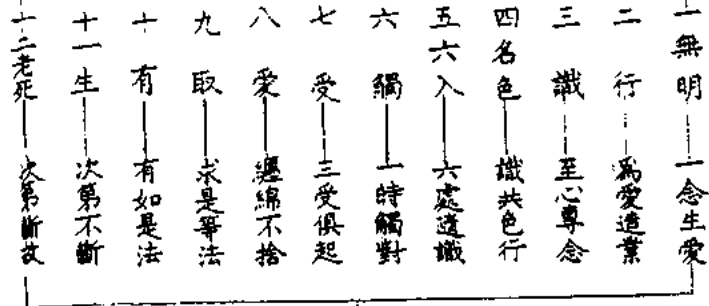 一無明——一念生愛
二行——爲愛造業
三識——至心專念
四名色——識共色行
五六入——六處遑識
六觸——一時觸對
七受——三受俱起
八愛——纏綿不捨
九取——求是等法
十有——有如是法
十一生——次第不斷
十二老死——次第斷故